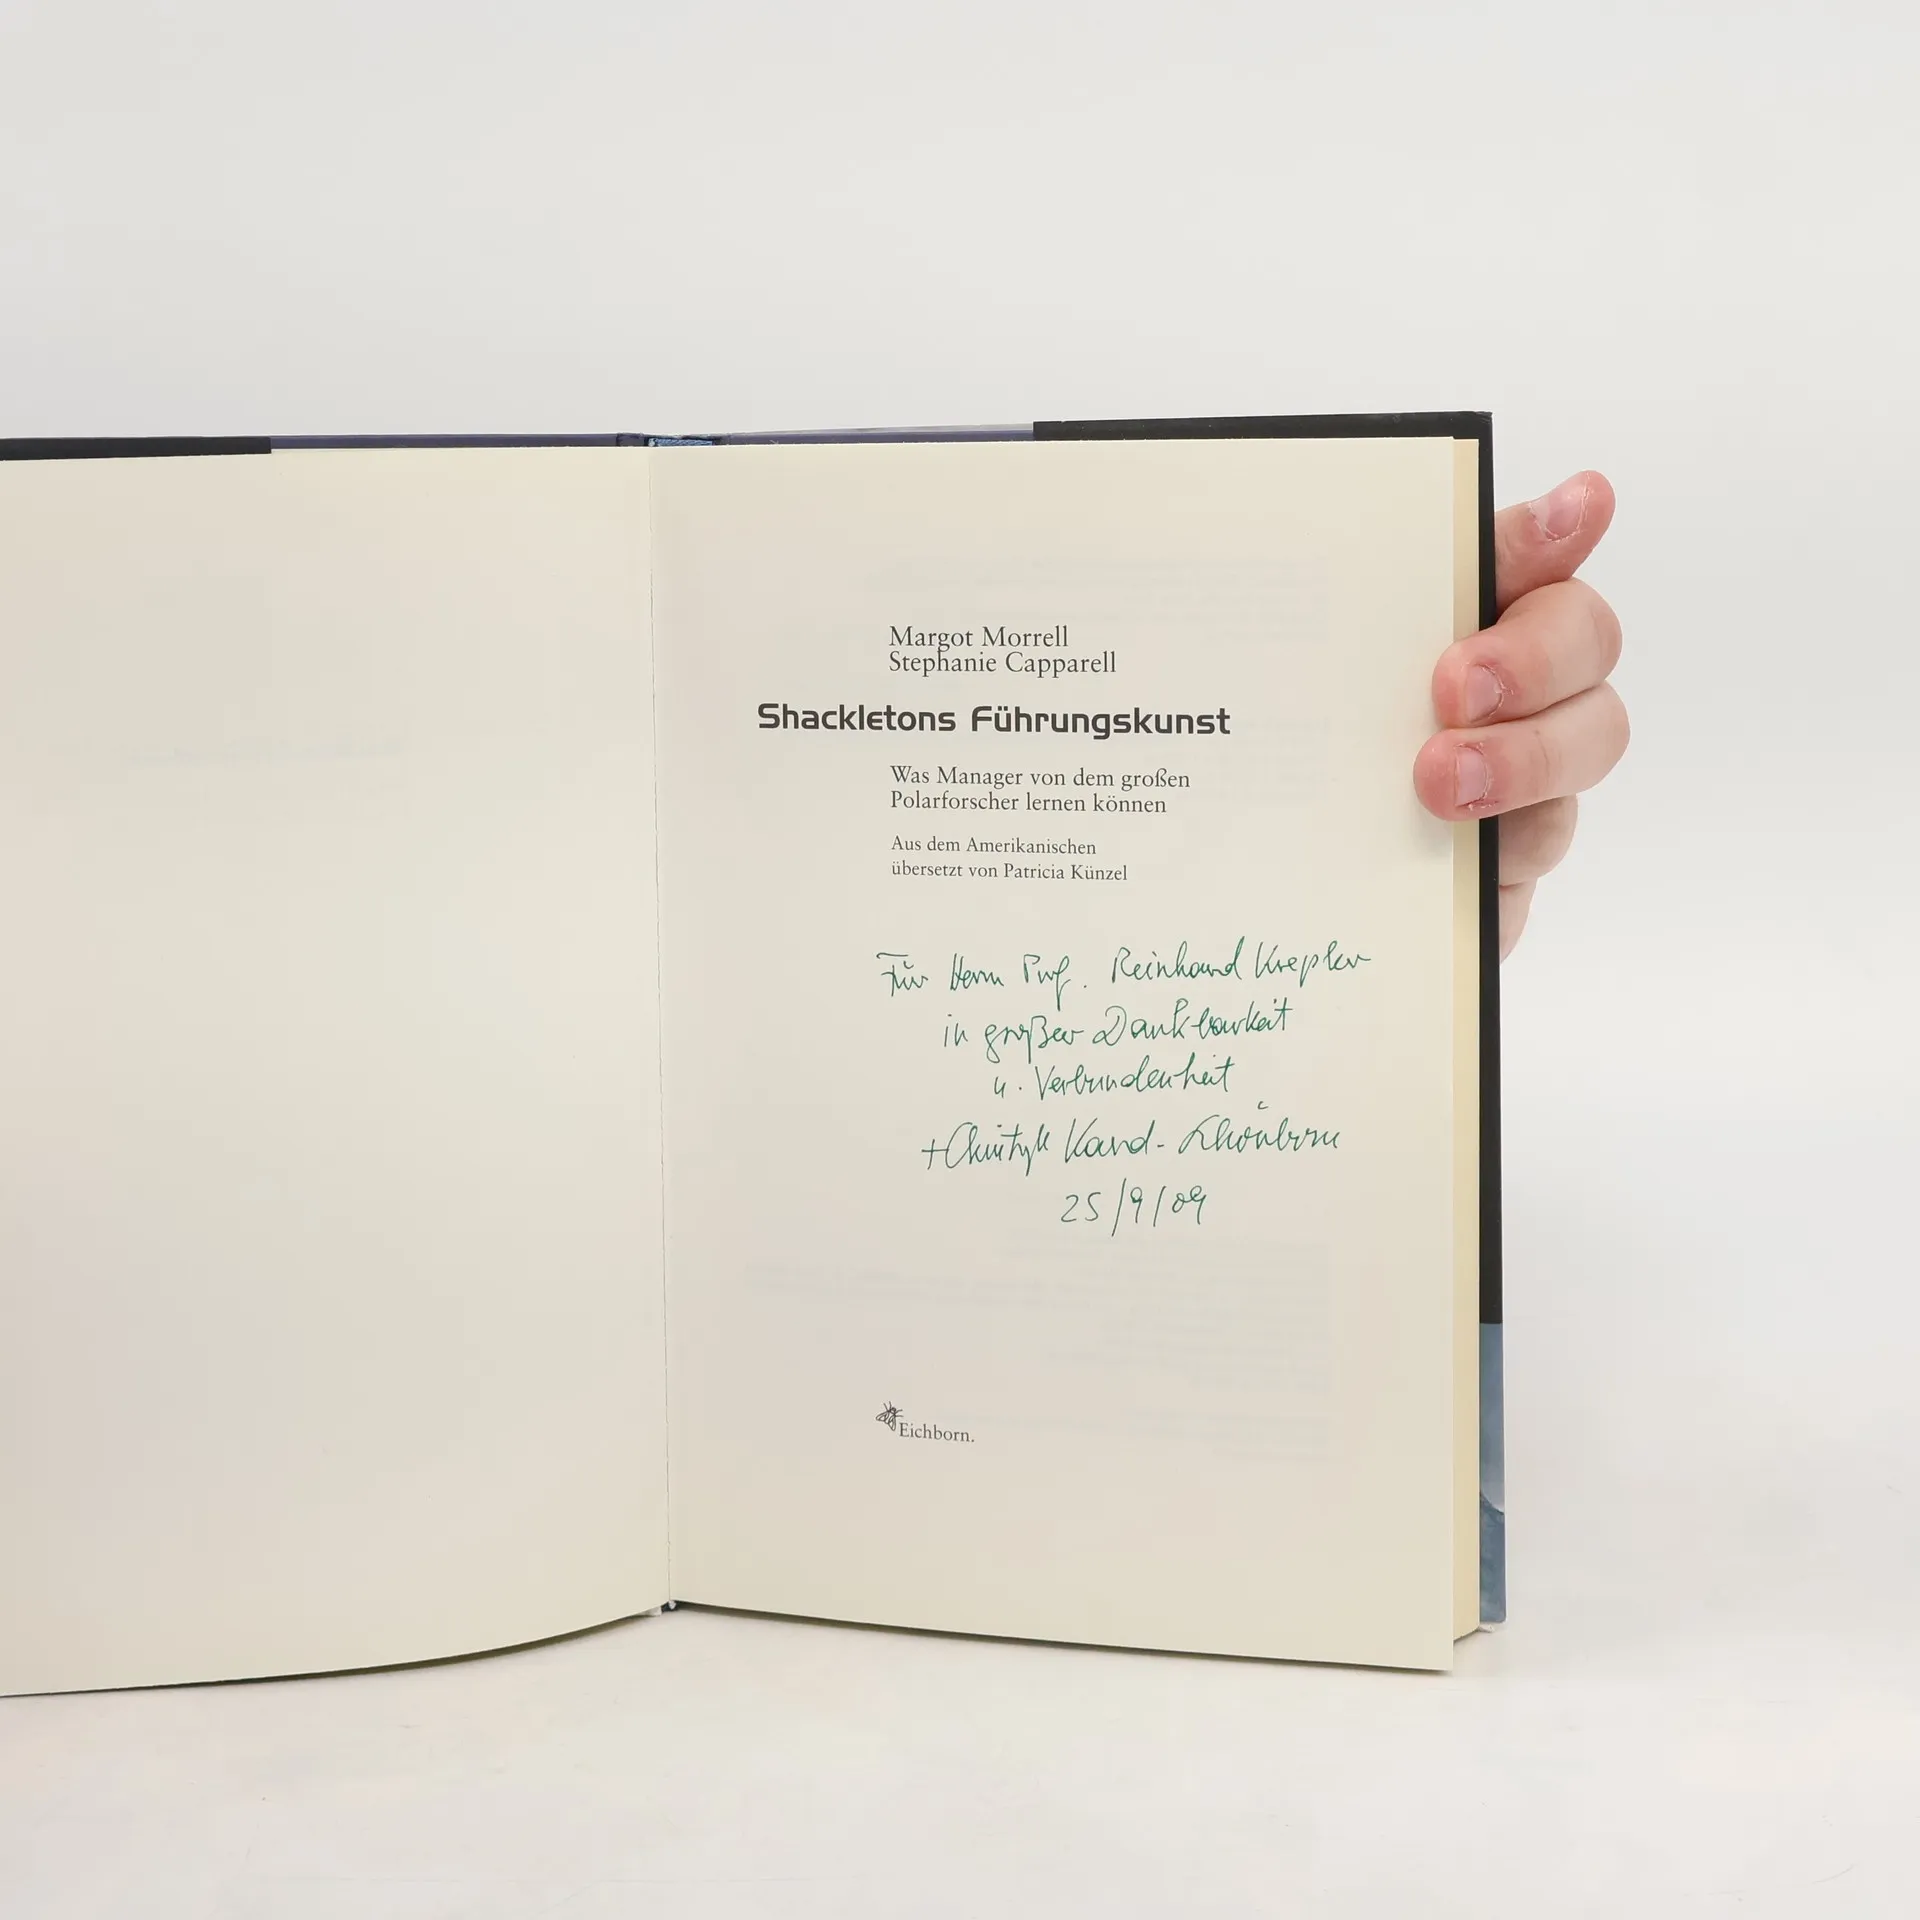 Margot Morrell
Stephanie Capparell
Shackletons Führungskunst
Was Manager von dem großen
Polarforscher lernen können
Aus dem Amerikanischen
übersetzt von Patricia Künzel
Für Herrn Prof. Reinhard Krepler
in großer Dankbarkeit
u. Verbundenheit
+Christoph Kard. Schönborn
25/9/09
Eichborn.